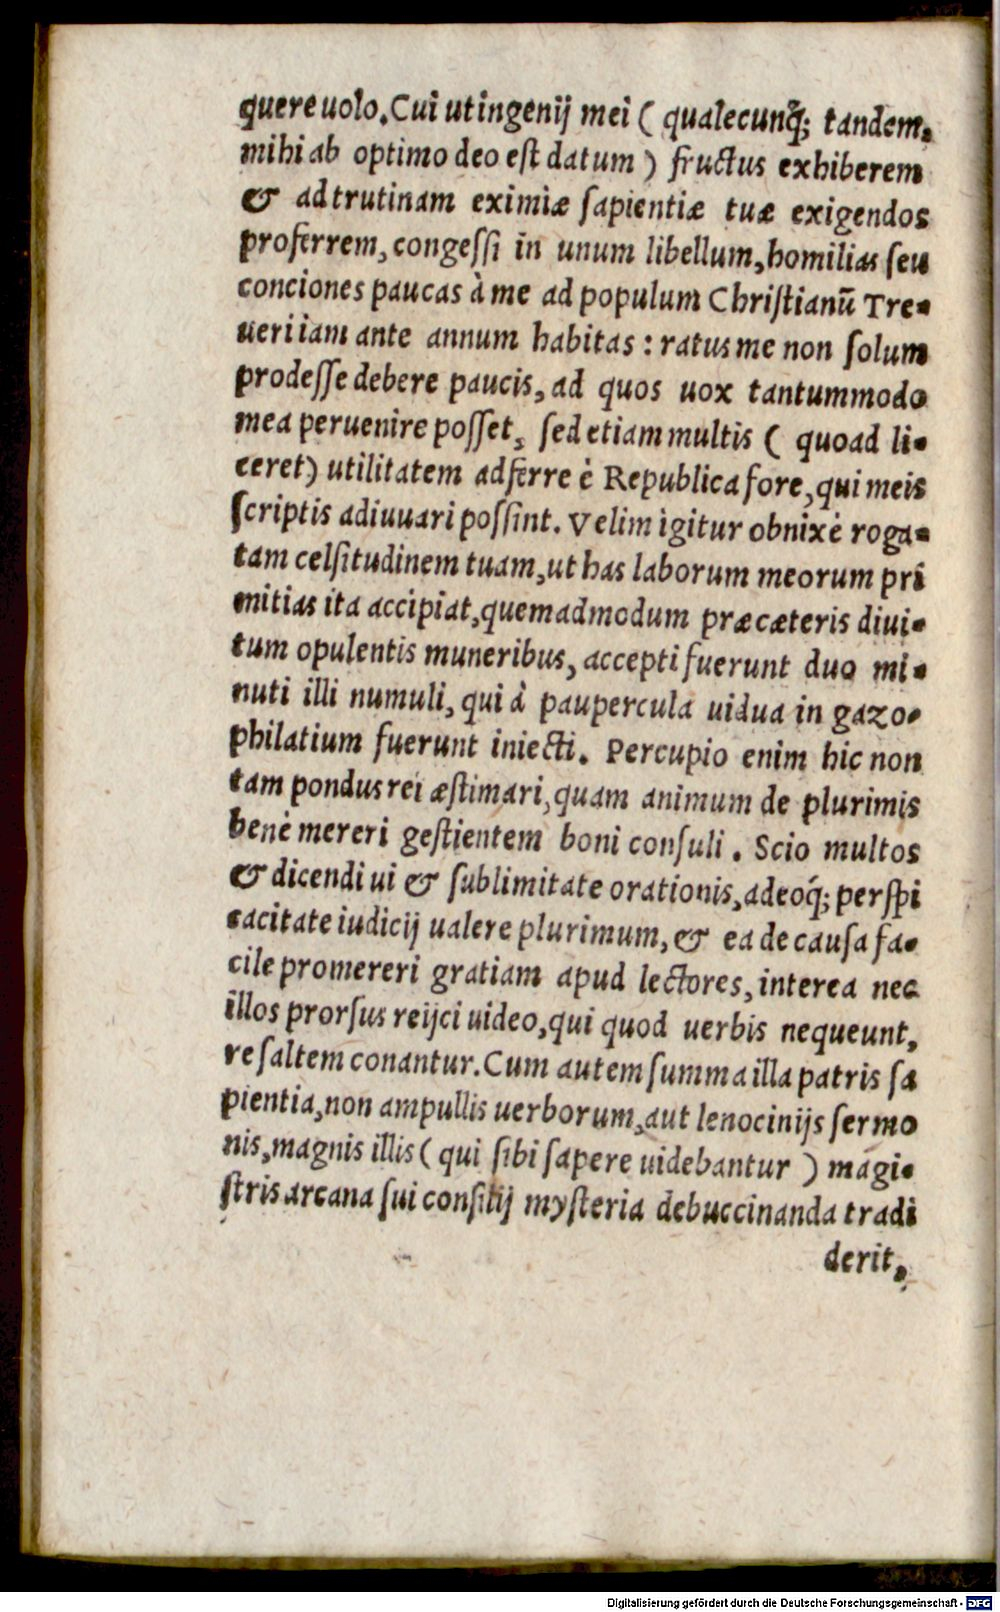 quere uolo. Cui ut ingenij mei ( qualecunq̃; tandem,
mihi ab optimo deo est datum ) fructus exhiberem
& ad trutinam eximiæ ſapientiæ tuæ exigendos
proferrem, congeſſi in unum libellum, homilias ſeu
conciones paucas à me ad populum Chriſtianū Tre-
ueri iam ante annum habitas : ratus me non ſolum
prodeſſe debere paucis, ad quos uox tantummodo
mea peruenire poſſet, ſed etiam multis ( quoad li-
ceret) utilitatem adferre è Republica fore, qui meis
ſcriptis adiuuari poſſint. Velim igitur obnixè roga-
tam celſitudinem tuam, ut has laborum meorum pri
mitias ita accipiat, quemadmodum præ cæteris diui-
tum opulentis muneribus, accepti fuerunt duo mi-
nuti illi numuli, qui à paupercula uidua in gazo-
philatium fuerunt iniecti. Percupio enim hic non
tam pondus rei æſtimari, quam animum de plurimis
benè mereri geſtientem boni conſuli. Scio multos
& dicendi ui & ſublimitate orationis, adeoq́; perſpi
cacitate iudicij ualere plurimum, & ea de cauſa fa-
cile promereri gratiam apud lectores, interea nec
illos prorſus reijci uideo, qui quod uerbis nequeunt,
re ſaltem conantur. Cum autem ſumma illa patris ſa
pientia, non ampullis uerborum, aut lenocinijs ſermo
nis, magnis illis ( qui ſibi ſapere uidebantur ) magi-
ſtris arcana ſui conſilij myſteria debuccinanda tradi
derit,
Digitalisierung gefördert durch die Deutsche Forschungsgemeinschaft - DFG